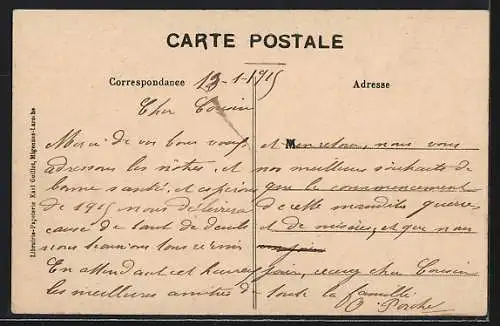 CARTE POSTALE
Correspondance 13-1-1915
Adresse
Cher Cousin
Merci de vos bons vœux, et M en retour, nous vous
adressons les nôtres et nos meilleurs souhaits de
bonne santé, et espérons que le commencement
de 1915 nous délivrera de cette maudite guerre
cause de tant de deuils et de misères, et que nous
nous réunirons tous
En attendant cet heureux jour, recevez cher Cousin
les meilleures amitiés de toute la famille.
Librairie-Papeterie Karl Guillot, Migennes-Laroche